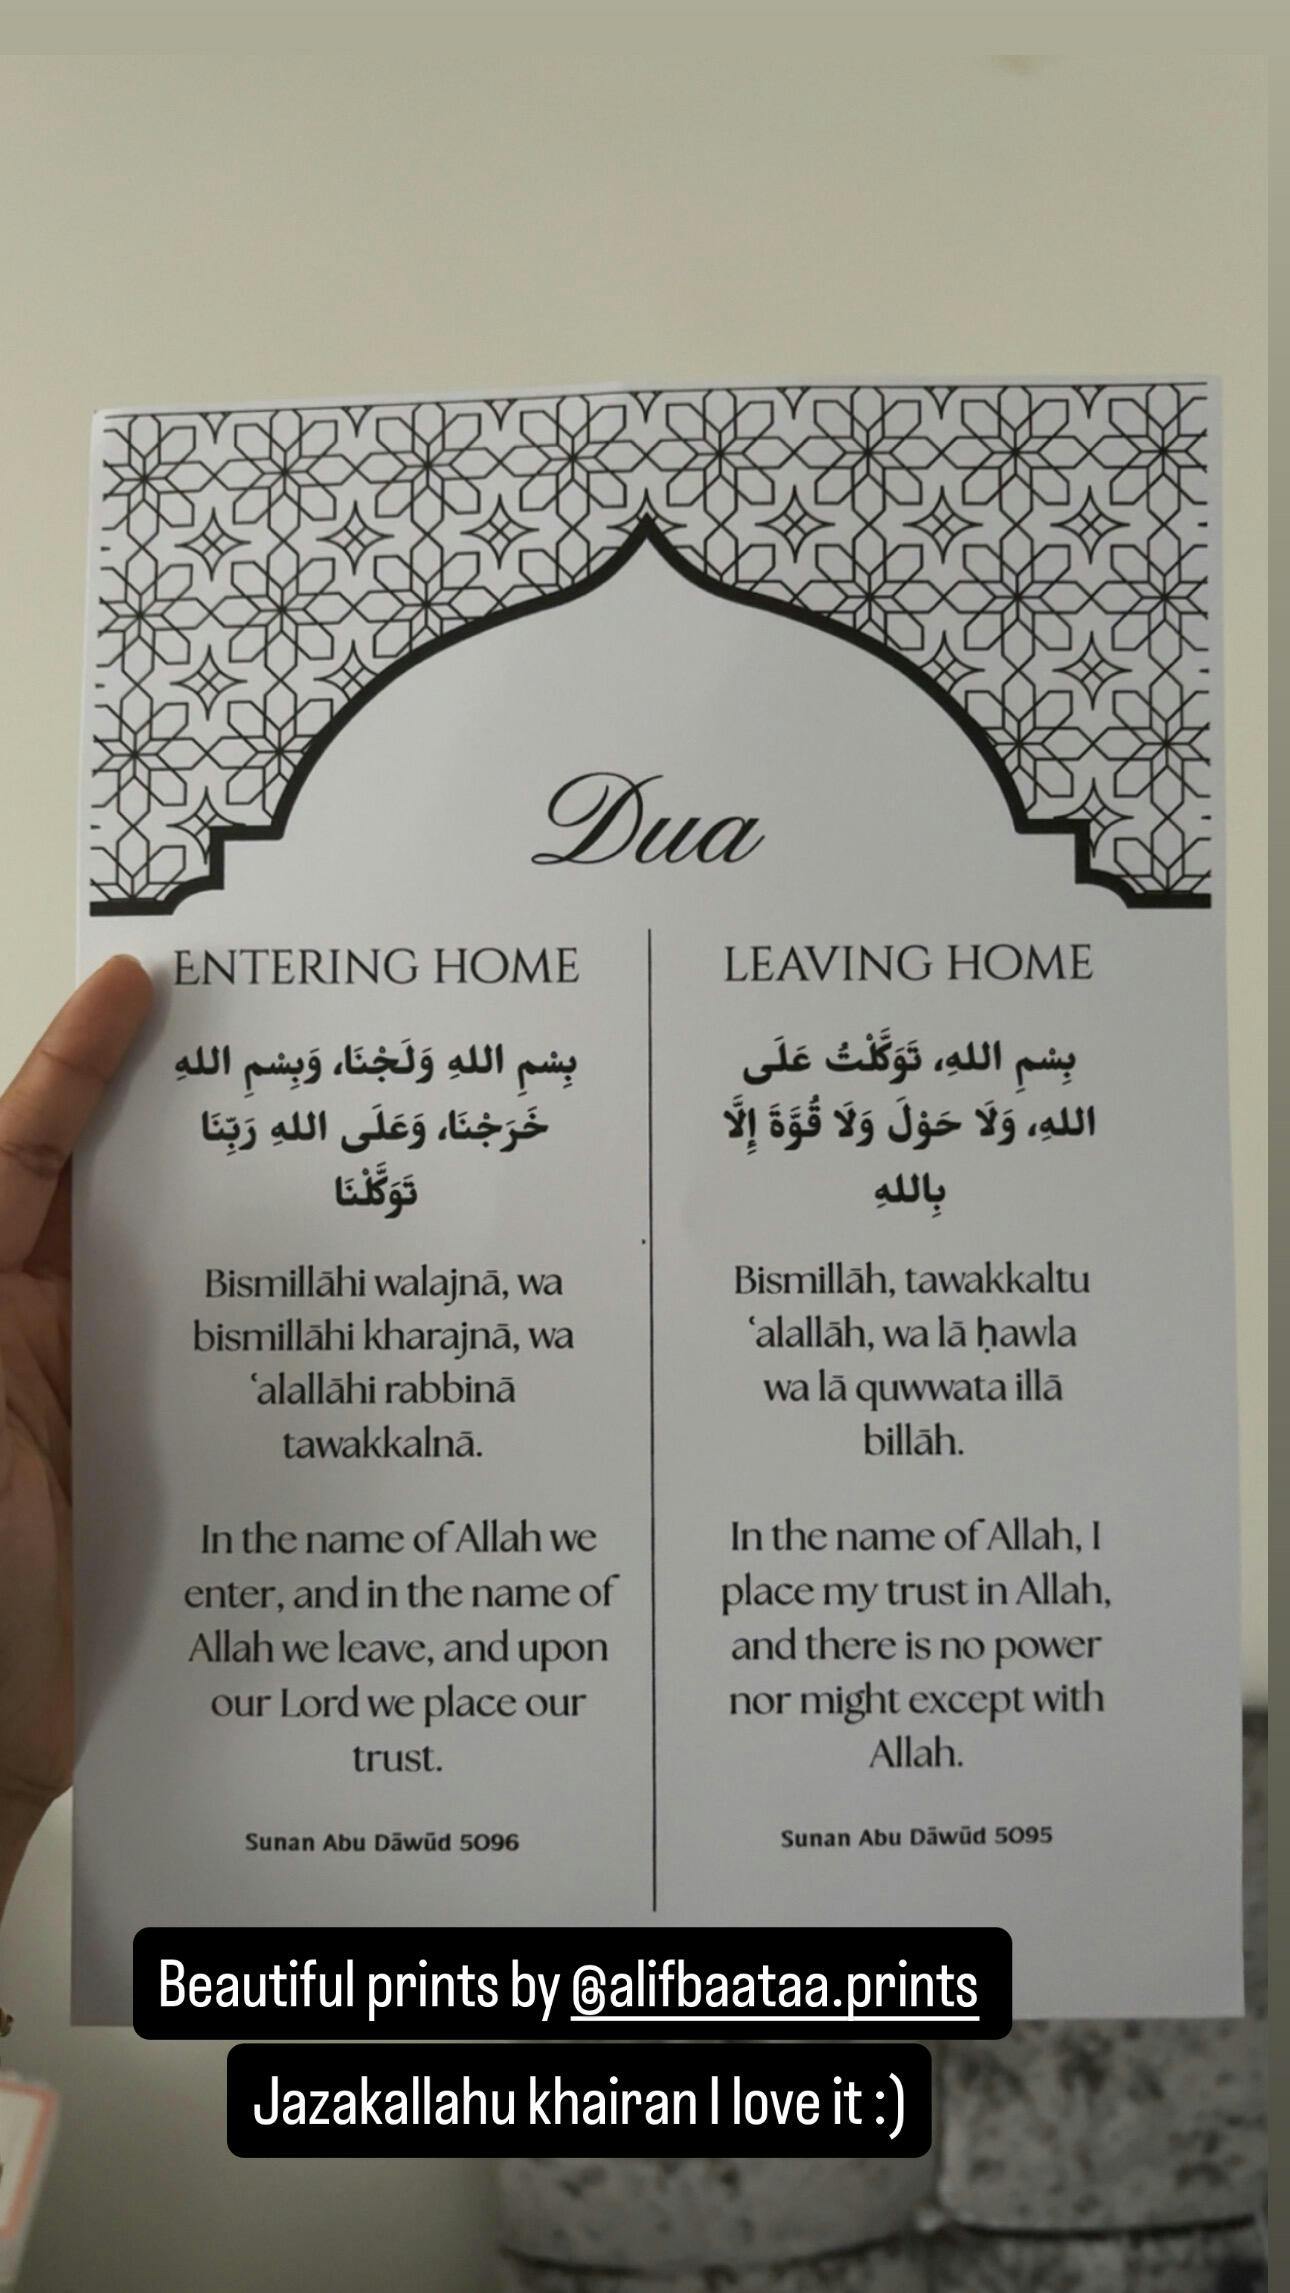 Dua
ENTERING HOME
بِسْمِ اللهِ وَلَجْنَا، وَبِسْمِ اللهِ
خَرَجْنَا، وَعَلَى اللهِ رَبِّنَا
تَوَكَّلْنَا
Bismillāhi walajnā, wa
bismillāhi kharajnā, wa
ʿalallāhi rabbinā
tawakkalnā.
In the name of Allah we
enter, and in the name of
Allah we leave, and upon
our Lord we place our
trust.
Sunan Abu Dāwūd 5096
LEAVING HOME
بِسْمِ اللهِ، تَوَكَّلْتُ عَلَى
اللهِ، وَلَا حَوْلَ وَلَا قُوَّةَ إِلَّا
بِاللهِ
Bismillāh, tawakkaltu
ʿalallāh, wa lā ḥawla
wa lā quwwata illā
billāh.
In the name of Allah, I
place my trust in Allah,
and there is no power
nor might except with
Allah.
Sunan Abu Dāwūd 5095
Beautiful prints by @alifbaataa.prints
Jazakallahu khairan I love it :)